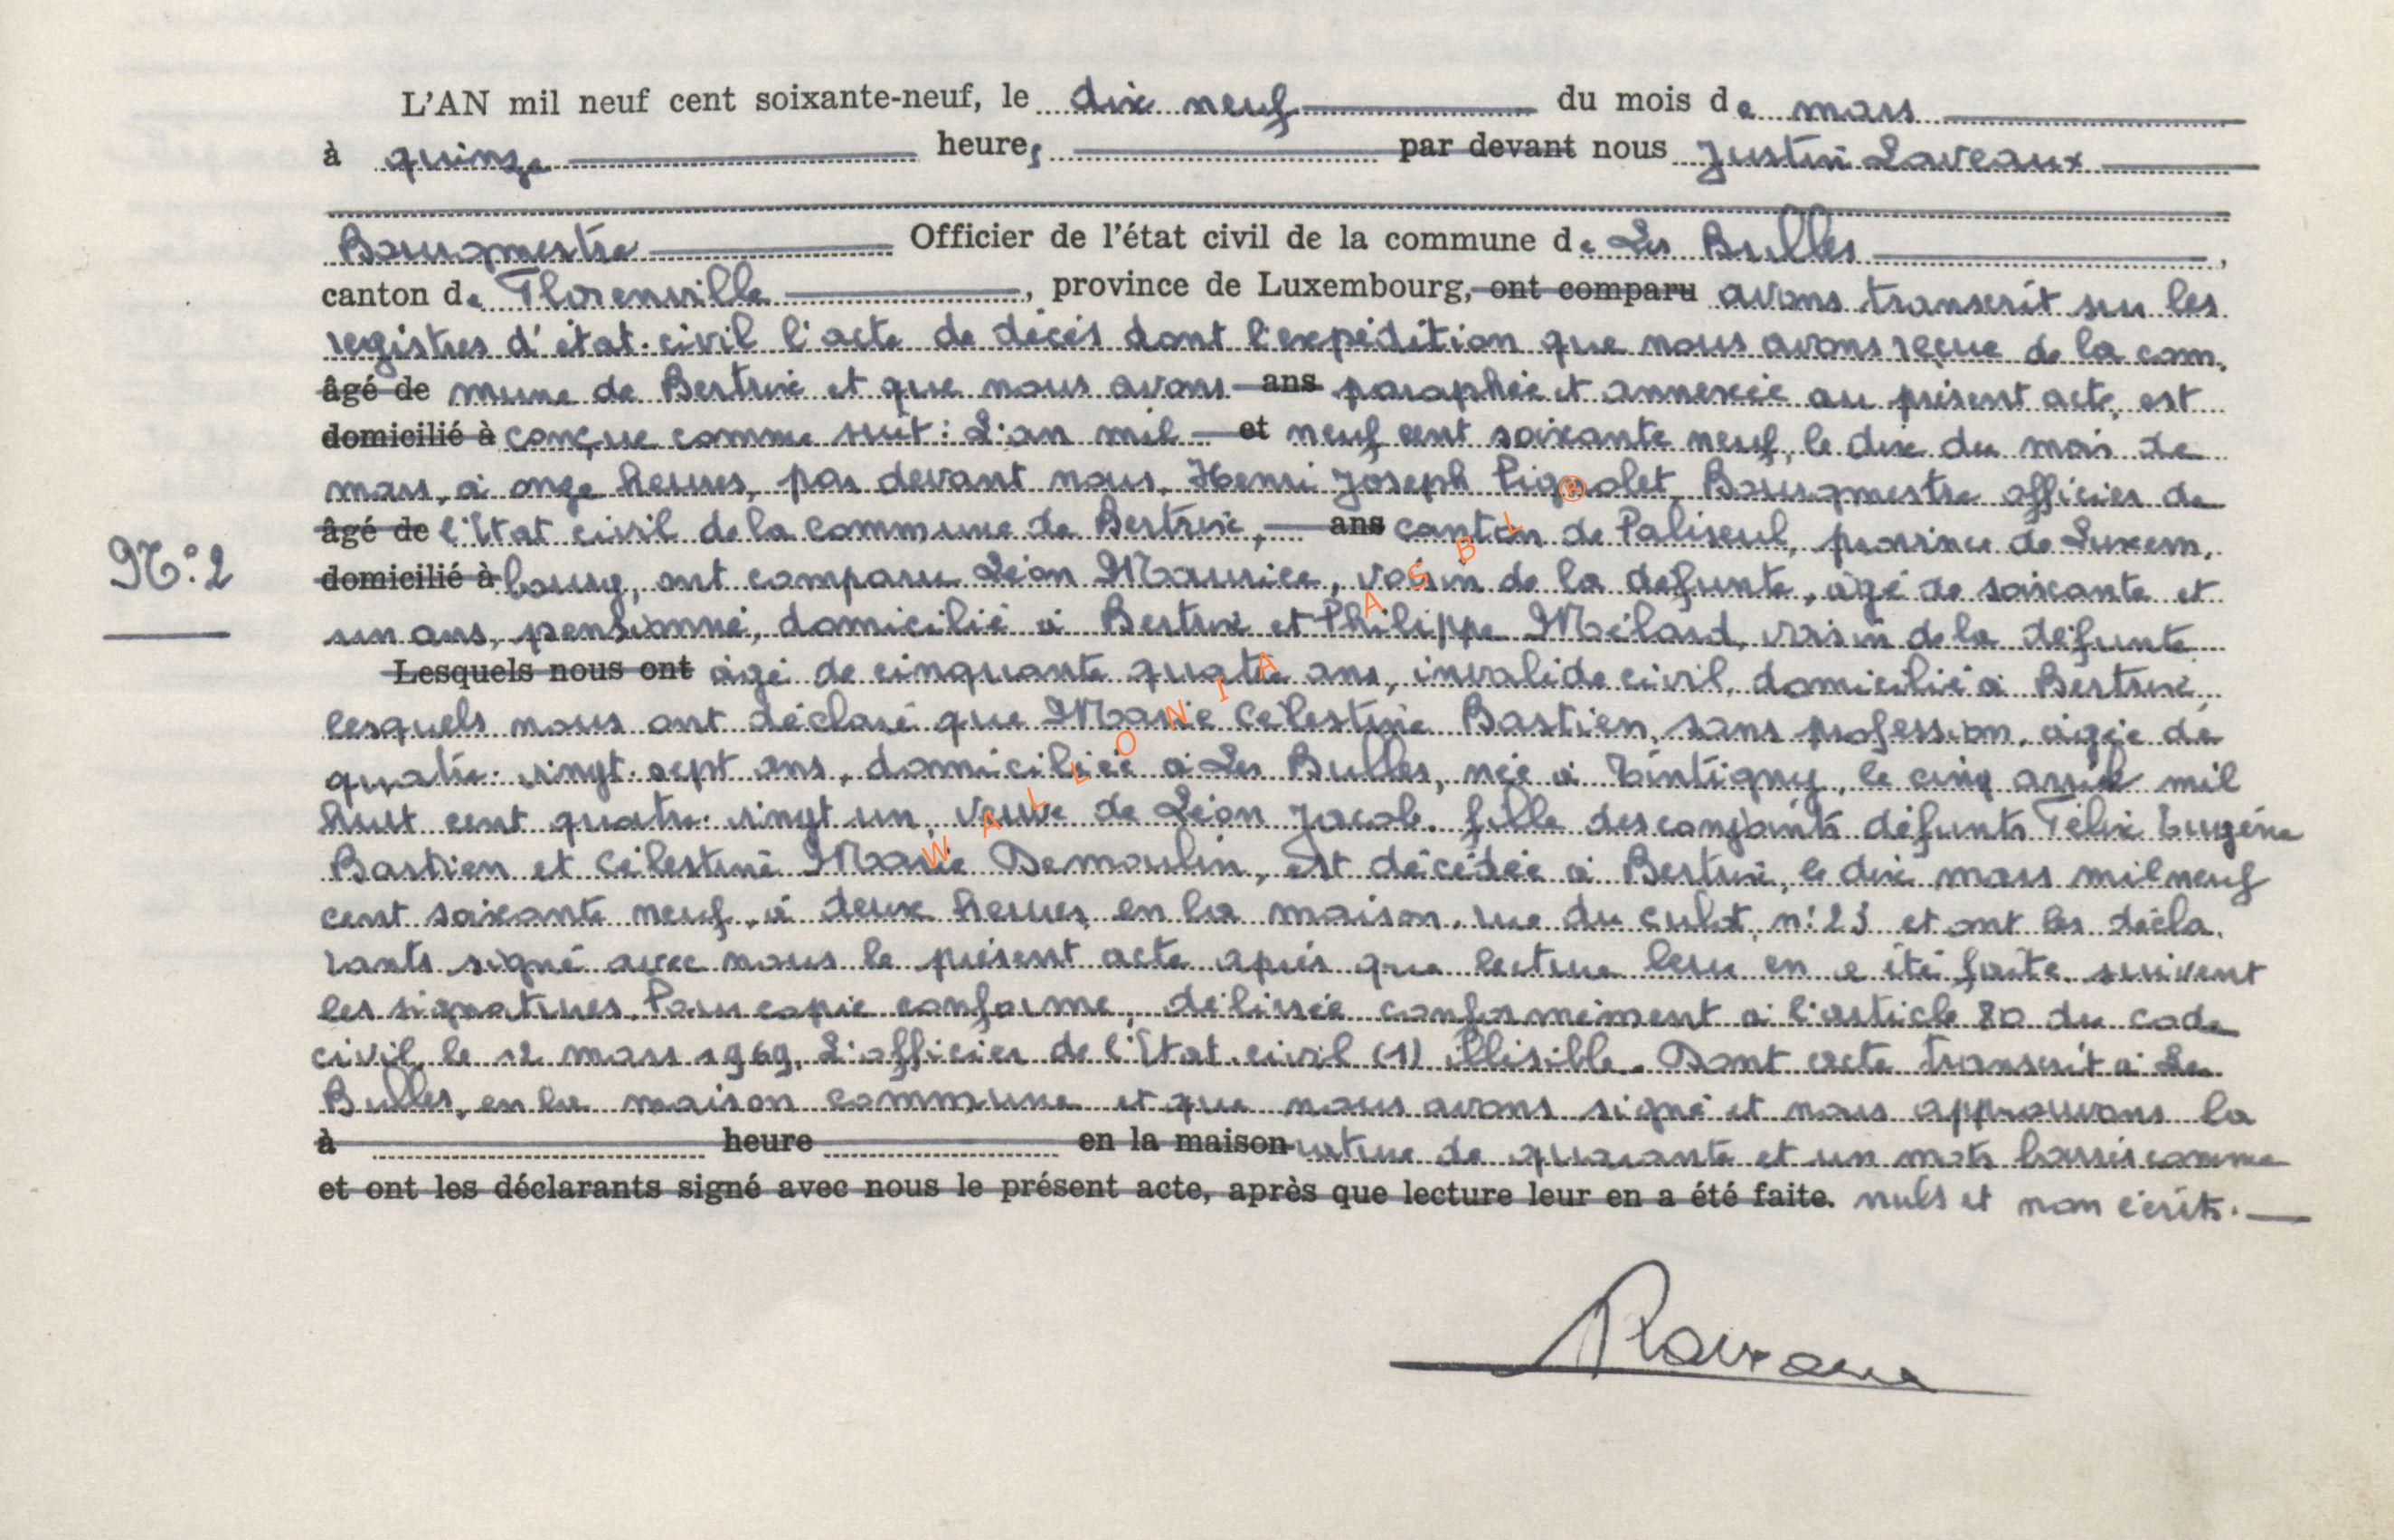 L'AN mil neuf cent soixante-neuf, le dix neuf du mois de mars
à quinze heures par devant nous Justin Laveaux
Bourgmestre Officier de l'état civil de la commune de Les Bulles,
canton de Florenville, province de Luxembourg, ont comparu avons transcrit sur les
registres d'état-civil l'acte de décès dont l'expédition que nous avons reçue de la com.
âgé de mune de Bertrix et que nous avons ans paraphée et annexée au présent acte, est
domicilié à conçue comme suit : L'an mil et neuf cent soixante neuf, le dix du mois de
mars, à onze heures, par devant nous, Henri Joseph Pignolet, Bourgmestre officier de
âgé de l'Etat civil de la commune de Bertrix, ans canton de Paliseul, province de Luxem.
N°: 2
domicilié à bourg, ont comparu Léon Maurice, voisin de la défunte, âgé de soixante et
un ans, pensionné, domicilié à Bertrix et Philippe Mélard, voisin de la défunte
Lesquels nous ont âgé de cinquante quatre ans, invalide civil, domicilié à Bertrix,
lesquels nous ont déclaré que Marie Célestine Bastien, sans profession, âgée de
quatre-vingt-sept ans, domiciliée à Les Bulles, née à Tintigny, le cinq avril mil
huit cent quatre-vingt un, veuve de Léon Jacob, fille des conjoints défunts Félix Eugène
Bastien et Célestine Marie Demoulin, est décédée à Bertrix, le dix mars mil neuf
cent soixante neuf, à deux heures, en la maison, rue du culot, n: 23 et ont les décla.
rants signé avec nous le présent acte après que lecture leur en a été faite. suivent
les signatures. Pour copie conforme, délivrée conformément à l'article 80 du code
civil, le 12 mars 1969. L'officier de l'Etat-civil (1) illisible. Dont acte transcrit à Les
Bulles, en la maison commune et que nous avons signé et nous approuvons la
à heure en la maison rature de quarante et un mots barrés comme
et ont les déclarants signé avec nous le présent acte, après que lecture leur en a été faite. nuls et non écrits.
Laveaux
WALLONIA ASBL ®